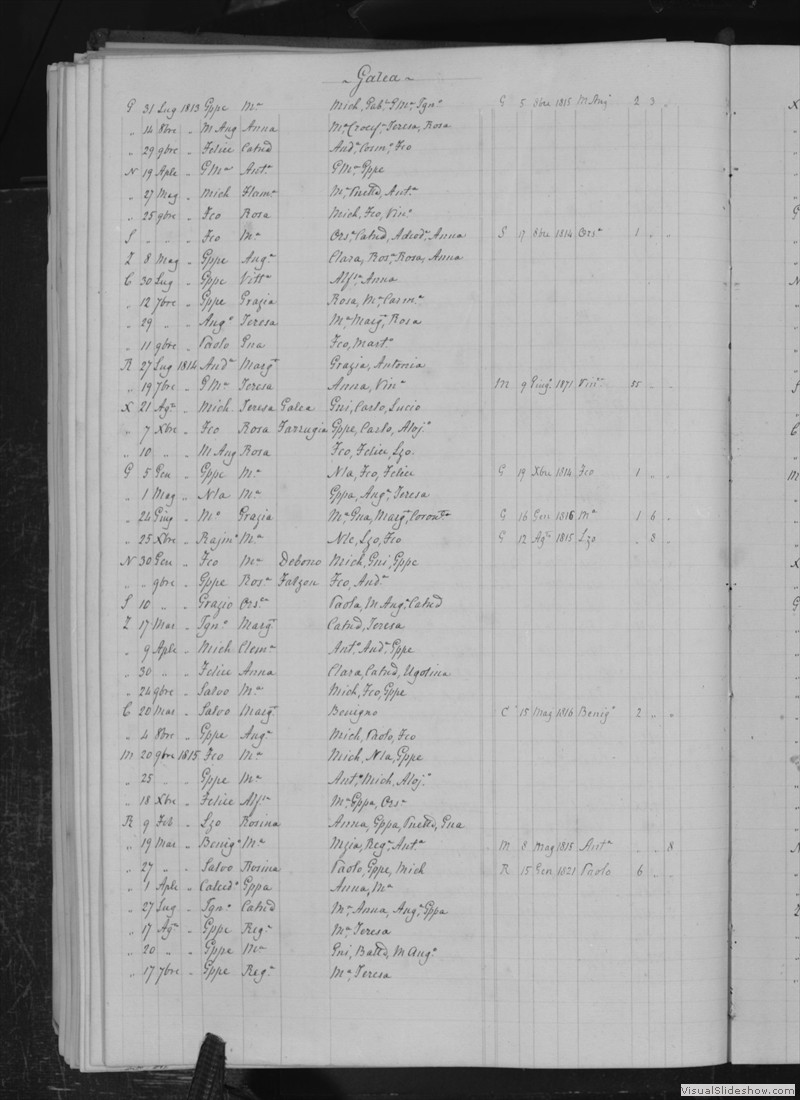 ~ Galea ~
G 31 Lug 1813 Gppe Ma Mich, Gabe, GMa, Igno G 5 8bre 1815 M Ang 2 3 „
„ 14 8bre „ M Ang Anna Ma Crocifa, Teresa, Rosa
„ 29 9bre „ Felice Catnd Anda, Cosmo, Fco
N 19 Aple „ GMa Anta GMa, Gppe
„ 27 Mag „ Mich Flama Ma, Vnetta, Anta
„ 25 9bre „ Fco Rosa Mich, Fco, Vino
S „ „ „ Fco Ma Orsa, Catnd, Adeoda, Anna S 17 8bre 1814 Orsa 1 „ „
Z 8 Mag „ Gppe Anga Clara, Rosa, Rosa, Anna
C 30 Lug „ Gppe Vitta Alfsa, Anna
„ 12 7bre „ Gppe Grazia Rosa, Ma, Carma
„ 29 „ „ Ango Teresa Ma, Margta, Rosa
„ 11 9bre „ Paolo Gna Fco, Marto
R 27 Lug 1814 Anda Margta Grazia, Antonia
„ 19 7bre „ GMa Teresa Anna, Vina M 9 Giugo 1871 Vina 55 „ „
X 21 Ago „ Mich Teresa Galea Gni, Carlo, Lucio
„ 7 Xbre „ Fco Rosa Farrugia Gppe, Carlo, Aloja
„ 10 „ „ M Ang Rosa Fco, Felice, Lzo
G 5 Gen „ Gppe Ma Nla, Fco, Felice G 19 Xbre 1814 Fco 1 „ „
„ 1 Mag „ Nla Ma Gppa, Anga, Teresa
„ 24 Giug „ Mo Grazia Ma, Gna, Margta, Corona G 16 Gen 1816 Ma 1 6 „
„ 25 Xbre „ Rajmo Ma Nle, Lzo, Fco G 12 Ago 1815 Lzo „ 8 „
N 30 Gen „ Fco Ma Debono Mich, Gni, Gppe
„ „ 9bre „ Gppe Rosa Falzon Fco, Anda
S 10 „ „ Grazio Orsa Paola, M Anga, Catnd
Z 17 Mar „ Igno Margta Catnd, Teresa
„ 9 Aple „ Mich Clema Anto, Anda, Gppe
„ 30 „ „ Felice Anna Clara, Catnd, Ugolina
„ 24 9bre „ Salvo Ma Mich, Fco, Gppe
C 20 Mar „ Salvo Margta Benigno C 15 Mag 1816 Benigo 2 „ „
„ 4 8bre „ Gppe Anga Mich, Paolo, Fco
M 20 9bre 1815 Fco Ma Mich, Nla, Gppe
„ 25 „ „ Gppe Ma Anto, Mich, Aloja
„ 18 Xbre „ Felice Alfsa Ma, Gppa, Orsa
R 9 Feb „ Lzo Rosina Anna, Gppa, Vnetta, Gna
„ 19 Mar „ Benigo Ma Mzia, Rega, Anta M 8 Mag 1815 Anta „ „ 8
„ 27 „ „ Salvo Rosina Paolo, Gppe, Mich R 15 Gen 1821 Paolo 6 „ „
„ 1 Aple „ Calcedo Gppa Anna, Ma
„ 27 Lug „ Igno Catnd Ma, Anna, Anga, Gppa
„ 17 Ago „ Gppe Rega Ma, Teresa
„ 20 „ „ Gppe Ma Gni, Batta, M Anga
„ 17 7bre „ Gppe Rega Ma, Teresa
VisualSlideshow.com